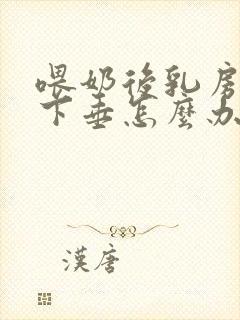 喂奶後乳房
下垂怎麼办
漢唐